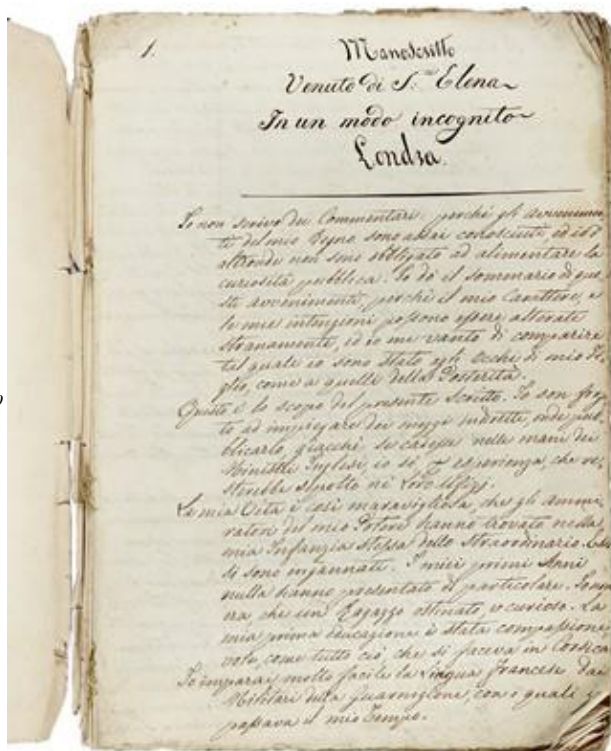 1.
Manoscritto
Venuto di S.ta Elena
In un modo incognito
Londra.
Io non scrivo dei Commentari, perchè gl'avvenimen
ti del mio Regno sono assai conosciuti, ed io d'
altronde non sono obbligato ad alimentare la
curiosità pubblica. Io dò il sommario di que
sti avvenimenti, perchè il mio Carattere, e
le mie intenzioni possono essere alterate
stranamente, ed io me vanto di comparire
tel quale io sono stato agli occhi di mio Fi
glio, come a quelle della Posterità.
Questo è lo scopo del presente scritto. Io son
to ad impiegare dei mezzi indiretti, onde pub
blicarlo, giacchè se cadesse nelle mani dei
Ministri Inglesi, io sò, p esperienza, che re
sterebbe sepolto ne' Loro Uffizj.
La mia Vita è così maravigliosa, che gli ammi
ratori del mio Potere hanno trovato nella
mia Infanzia stessa dello straordinario.
si sono ingannati. I miei primi Anni
nulla hanno presentato di particolare. Io non
era, che un Ragazzo ostinato, e curioso. La
mia prima educazione è stata compassione
vole, come tutto ciò che si faceva in Corsica
Io imparai molto facile la Lingua francese dai
Militari della Guarnigione, con i quali
passava il mio Tempo.